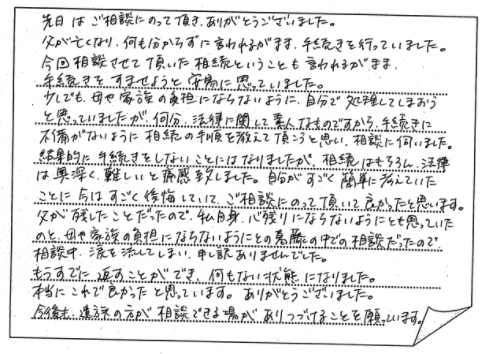 先日は ご相談にのって頂き、ありがとうございました。
父が亡くなり、何も分からずに言われるがまま、手続きを行っていました。
今回相談させて頂いた相続ということも言われるがまま、
手続きをすませようと安易に思っていました。
少しでも、母や家族の負担にならないように、自分で処理してしまおう
と思っていましたが、何分、法律に関して素人なものですから、手続きに
不備がないように相続の手順を教えて頂こうと思い、相談に伺いました。
結果的に手続きをしないことにはなりましたが、相続はもちろん、法律
は奥深く、難しいと痛感致しました。自分がすごく簡単に考えていた
ことに今はすごく後悔していて、ご相談にのって頂いて良かったと思います。
父が残したことだったので、私自身、心残りにならないようにとも思っていた
のと、母や家族の負担にならないようにとの葛藤の中での相談だったので
相談中、涙を流してしまい、申し訳ありませんでした。
もうすでに返すことができ、何もない状態になりました。
本当にこれで良かったと思っています。ありがとうございました。
今後も、遺族の方が相談できる場がありつづけることを願っています。